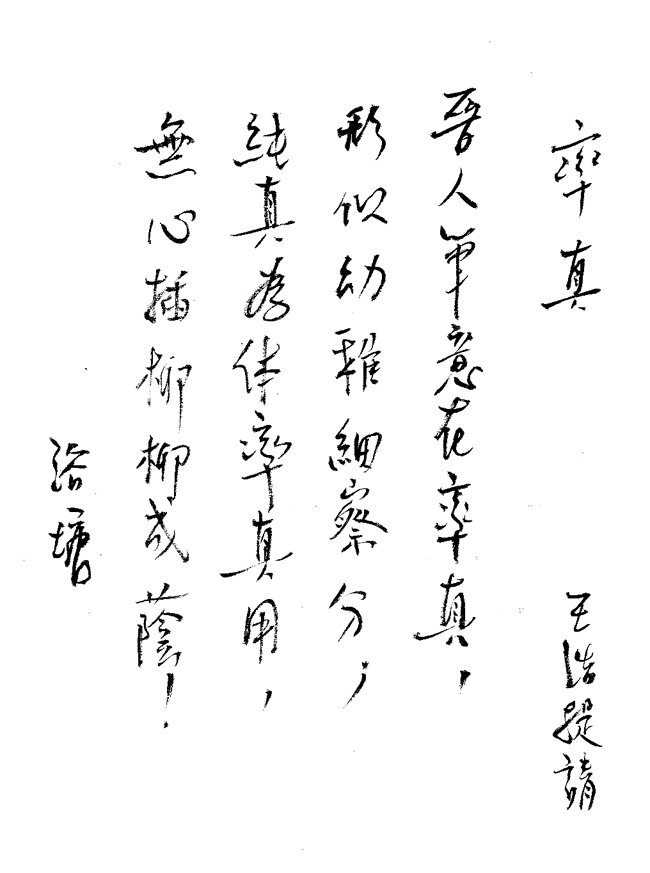 率真
王浩提請
晉人筆意在率真，
形似幼稚細察分；
純真為体率真用，
無心插柳柳成蔭！
浴塘